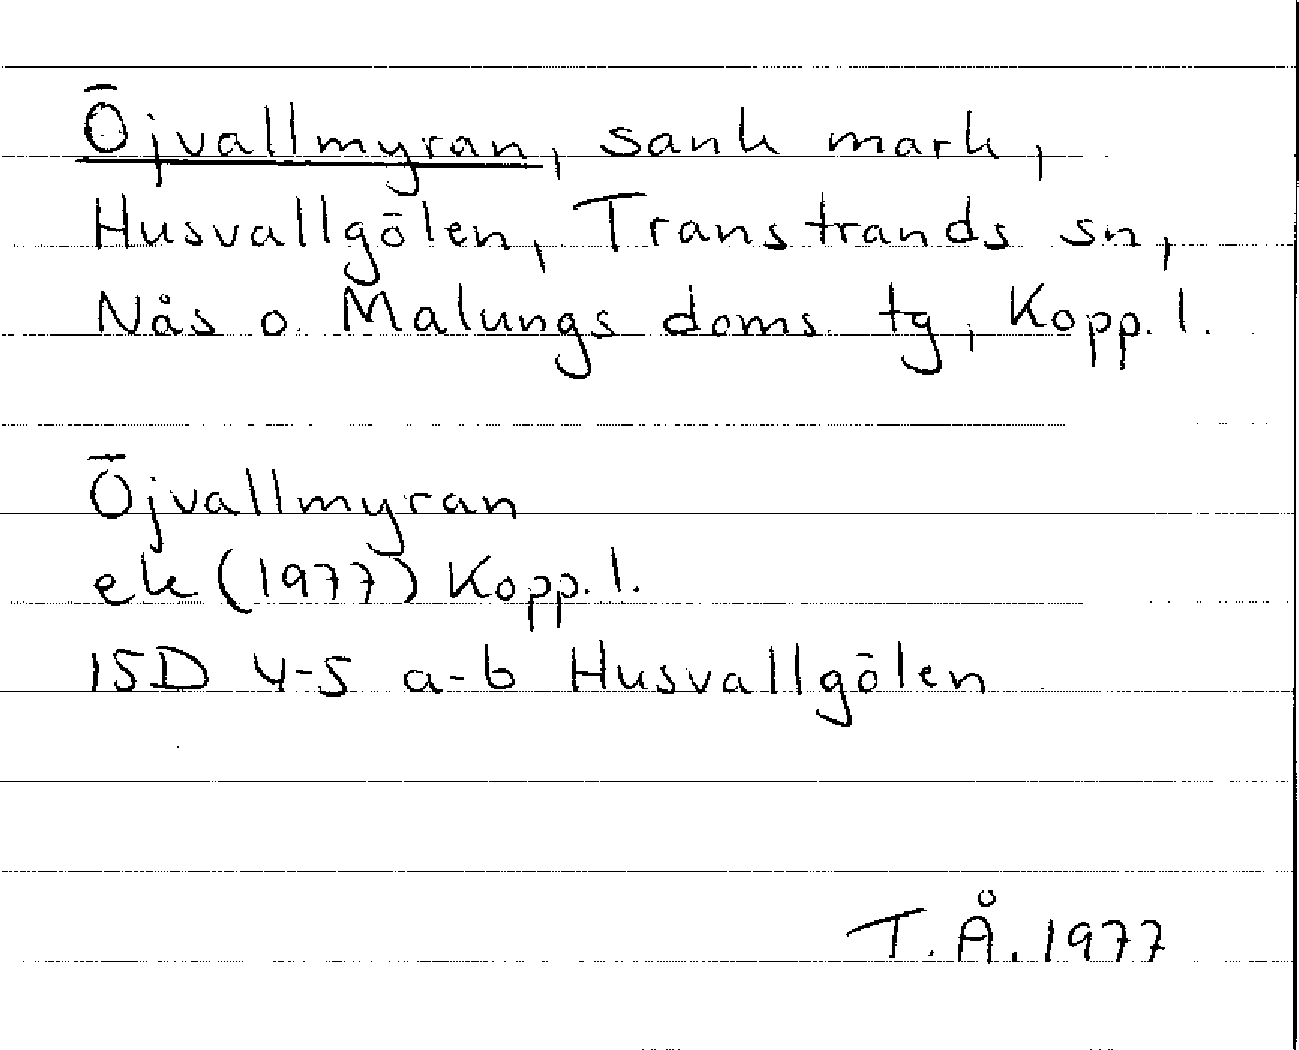 Öjvallmyran, sank mark,
Husvallgölen, Transtrands sn,
Nås o. Malungs doms. tg, Kopp. l.
Öjvallmyran
ek (1977) Kopp. l.
15D 4-5 a-b Husvallgölen
T. Å. 1977